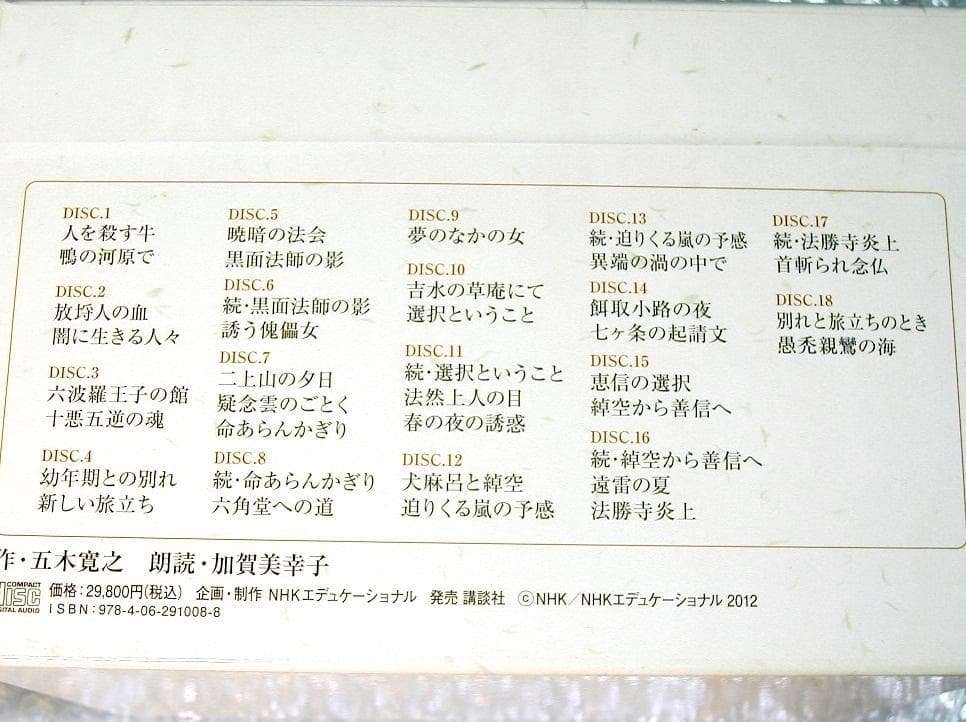 DISC.1
人を殺す牛
鴨の河原で
DISC.2
放埓人の血
闇に生きる人々
DISC.3
六波羅王子の館
十悪五逆の魂
DISC.4
幼年期との別れ
新しい旅立ち
DISC.5
暁暗の法会
黒面法師の影
DISC.6
続・黒面法師の影
誘う傀儡女
DISC.7
二上山の夕日
疑念雲のごとく
命あらんかぎり
DISC.8
続・命あらんかぎり
六角堂への道
DISC.9
夢のなかの女
DISC.10
吉水の草庵にて
選択ということ
DISC.11
続・選択ということ
法然上人の目
春の夜の誘惑
DISC.12
犬麻呂と綽空
迫りくる嵐の予感
DISC.13
続・迫りくる嵐の予感
異端の渦の中で
DISC.14
餌取小路の夜
七ヶ条の起請文
DISC.15
恵信の選択
綽空から善信へ
DISC.16
続・綽空から善信へ
遠雷の夏
法勝寺炎上
DISC.17
続・法勝寺炎上
首斬られ念仏
DISC.18
別れと旅立ちのとき
愚禿親鸞の海
作・五木寛之 朗読・加賀美幸子
COMPACT
disc
DIGITAL AUDIO
価格：29,800円（税込） 企画・制作 NHKエデュケーショナル 発売 講談社 ©NHK／NHKエデュケーショナル 2012
ISBN：978-4-06-291008-8